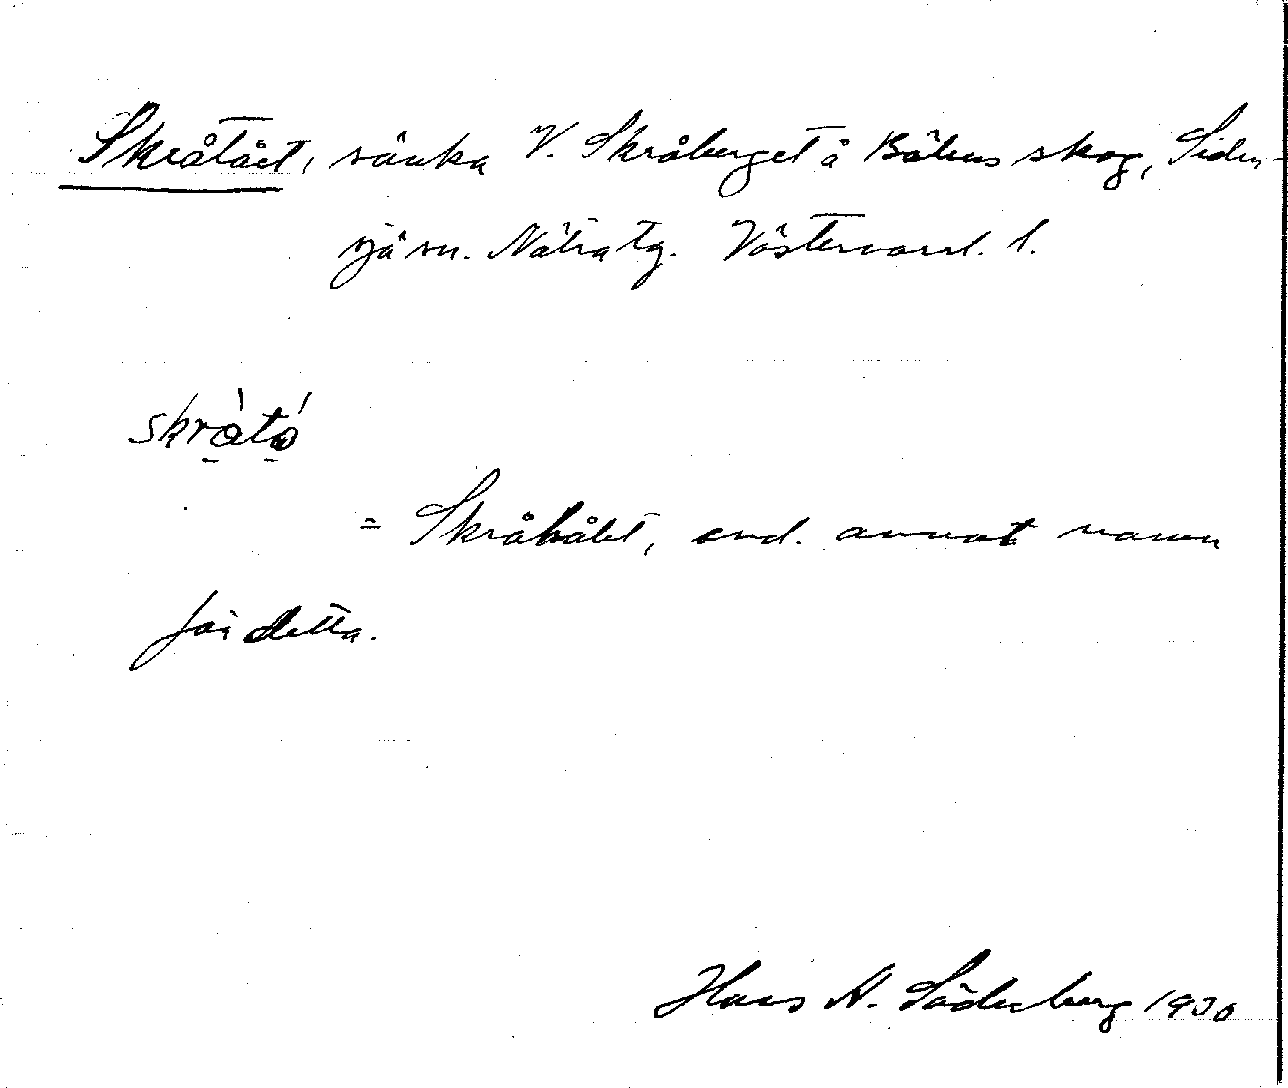 Skråtået, sänka V. Skråberget å Bölens skog, Siden-
sjö sn. Nätra tg. Västernorrl. l.
skrå̀tǻ
= Skråhålet, end. annat namn
för detta.
Hans A. Söderberg 1930